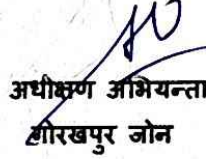 अधीक्षण अभियन्ता
गोरखपुर जोन